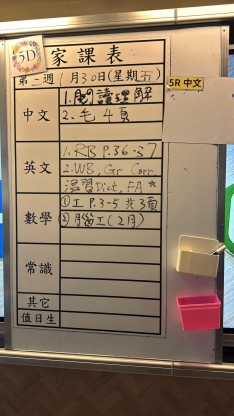 5D
家課表
第二週 1月30日(星期五)
5R 中文
中文
1.閱讀理解
2.毛 4頁
英文
1.RB P.36-37
2.WB, Gr Corr.
溫習Dict, FA *
數學
①工 P.3-5 共3頁
②腦工(2月)
常識
其它
值日生